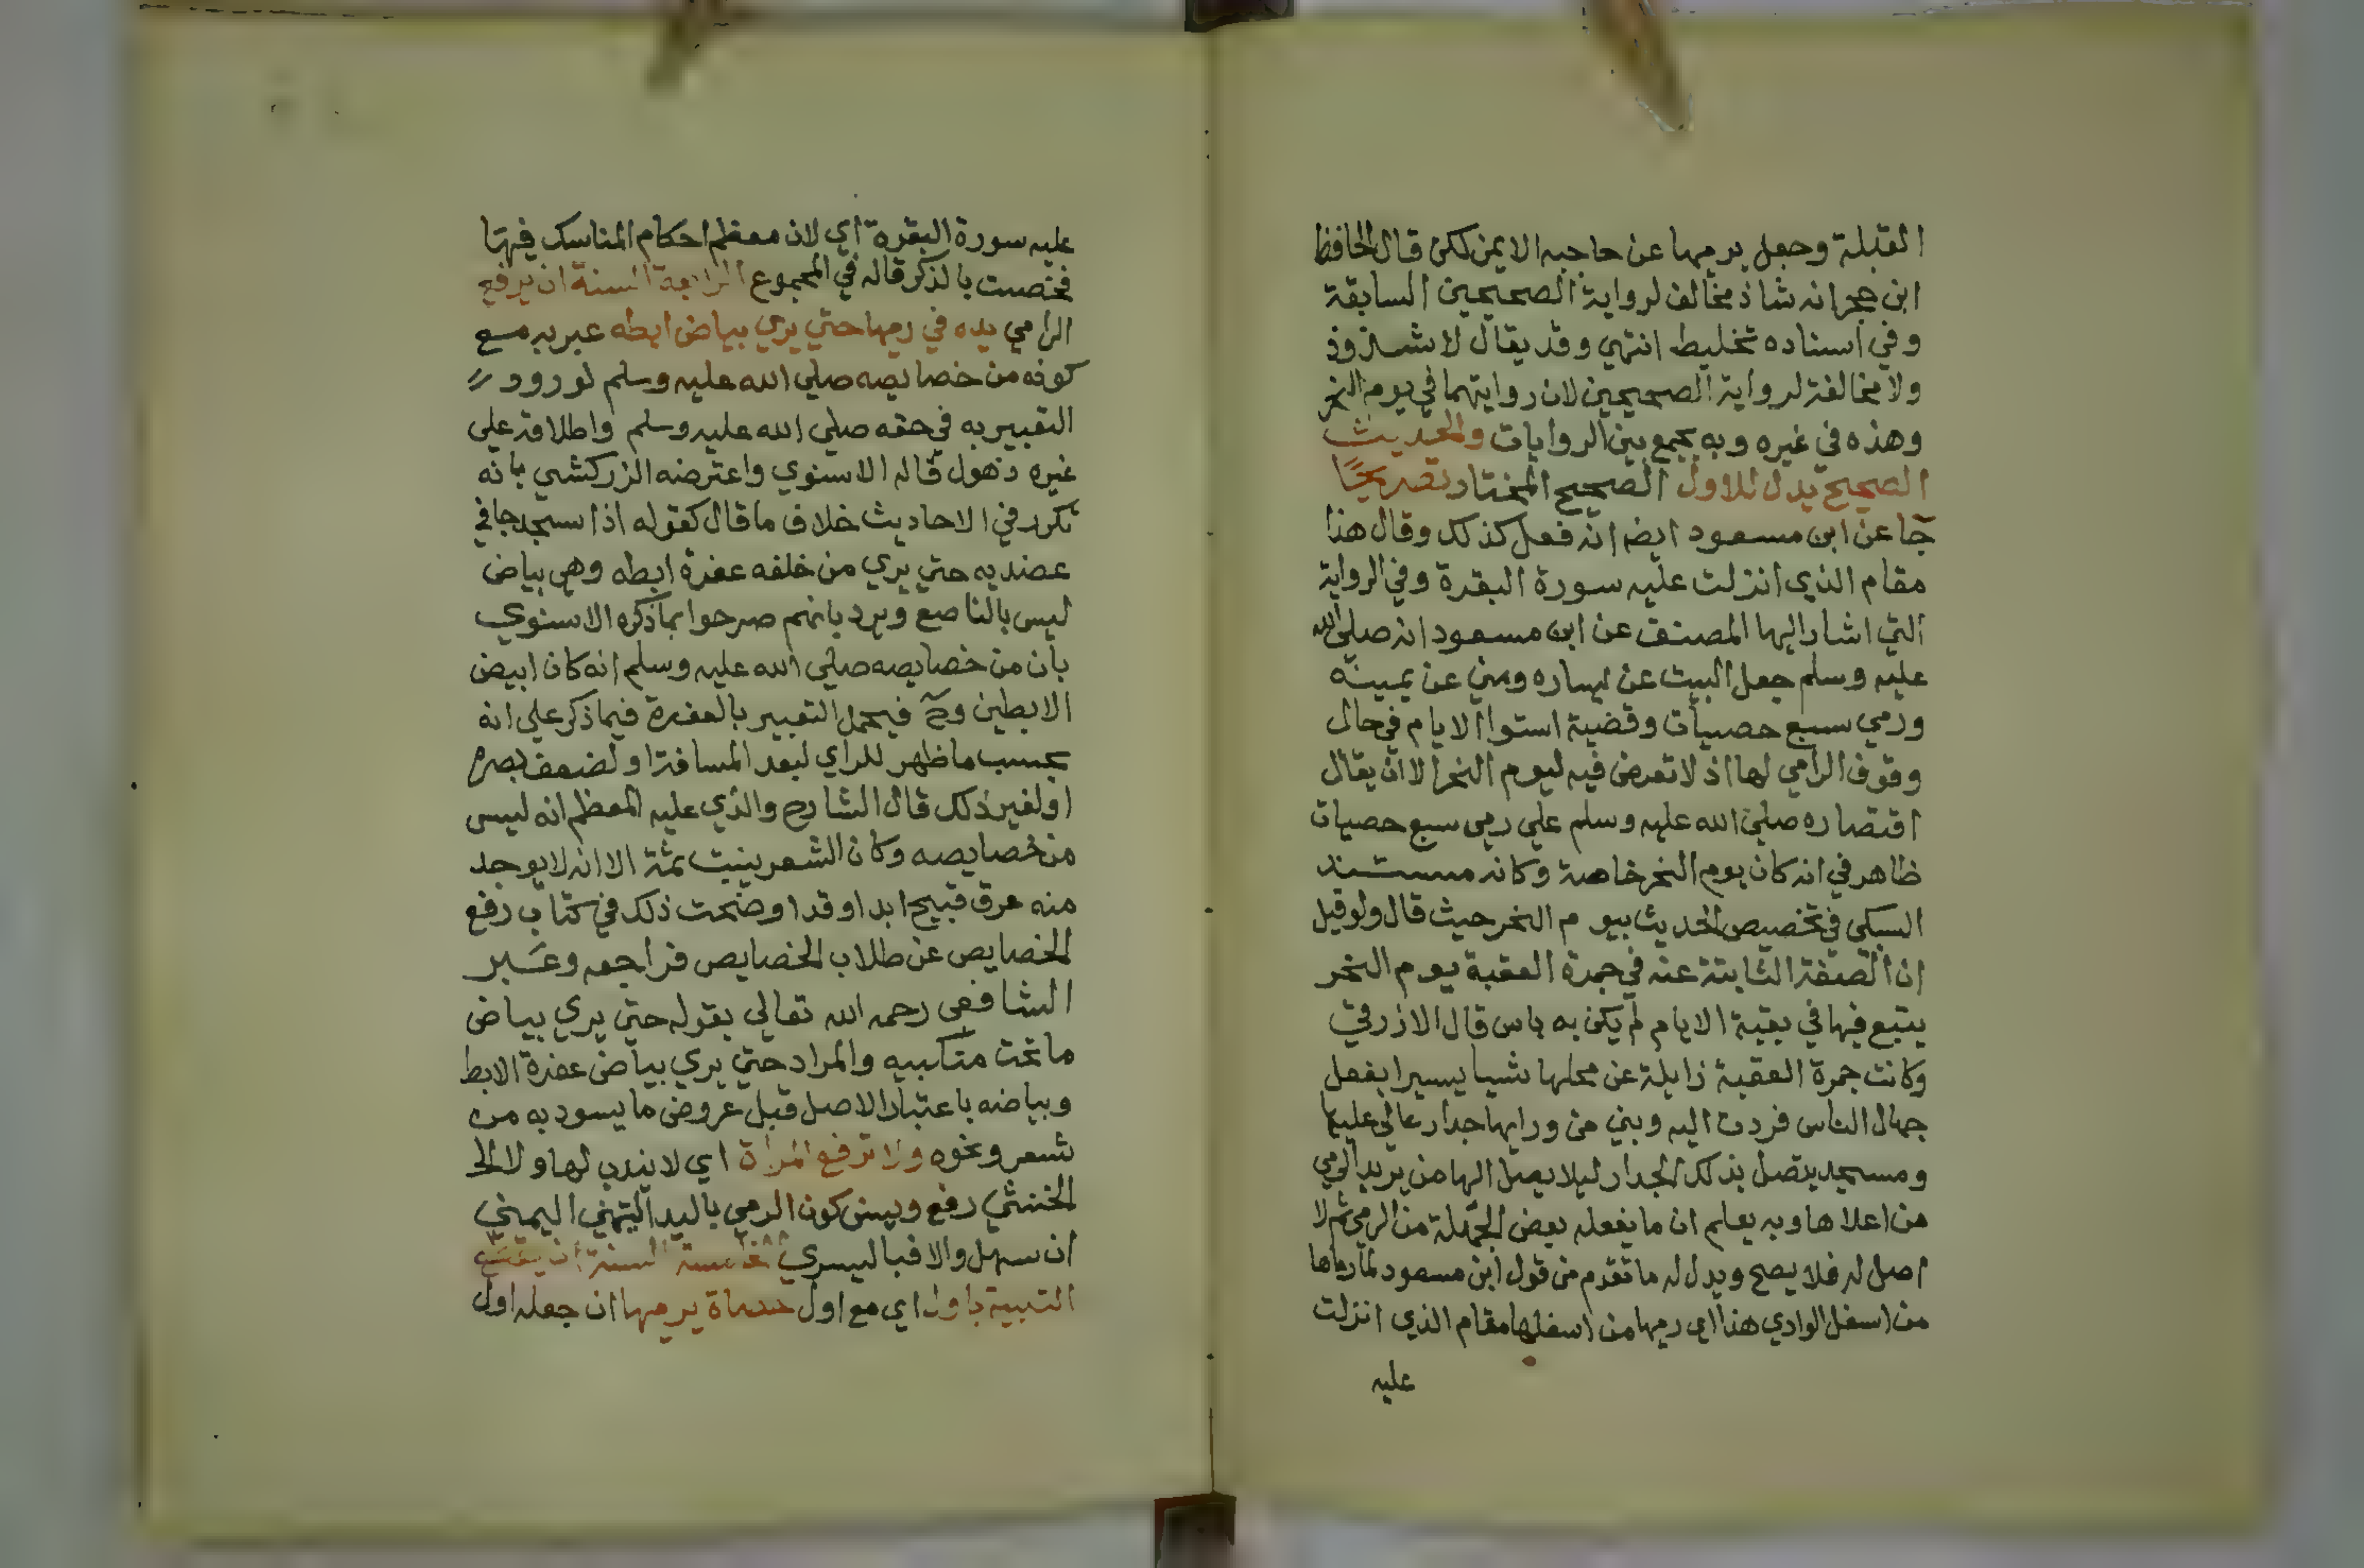 القبلة وجعل يرميها عن حاجبه الايمن لكن قال الحافظ
ابن حجر انه شاذ مخالف لرواية الصحيحين السابقة
وفي اسناده تخليط انتهي وقد يقال لا شذوذ
ولا مخالفة لرواية الصحيحين لان روايتهما في يوم النحر
وهذه في غيره وبه يجمع بين الروايات والحديث
الصحيح يدل للاول الصحيح المختار تصريحًا
جا عن ابن مسعود ايضا انه فعل كذلك وقال هذا
مقام الذي انزلت عليه سورة البقرة وفي الرواية
التي اشار اليها المصنف عن ابن مسعود انه صلي الله
عليه وسلم جعل البيت عن يساره ومني عن يمينه
ورمي سبع حصيات وقضية استوا الايام في حال
وقوف الرامي لها اذ لا تعرض فيه ليوم النحر الا ان يقال
اقتصاره صلي الله عليه وسلم علي رمي سبع حصيات
ظاهر في انه كان يوم النحر خاصة وكانه مستند
السبكي في تخصيص الحديث بيوم النحر حيث قال ولو قيل
ان الصفة الثابتة عنه في جمرة العقبة يوم النحر
يتبع فيها في بقية الايام لم يكن به باس قال الازرقي
وكانت جمرة العقبة زايلة عن محلها شيا يسيرا بفعل
جهال الناس فردت اليه وبني من ورايها جدار عالي عليها
ومسجد يتصل بذلك الجدار ليلا يصل اليها من يريد الرمي
من اعلاها وبه يعلم ان ما يفعله بعض الجهلة من الرمي ثم لا
اصل له فلا يصح ويدل له ما تقدم من قول ابن مسعود لما رماها
من اسفل الوادي هذا اي رميها من اسفلها مقام الذي انزلت
عليه
عليه سورة البقرة اي لان معظم احكام المناسك فيها
فخصت بالذكر قاله في المجموع الرابعة السنة ان يرفع
الرامي يده في رميها حتي يري بياض ابطه عبر به مع
كونه من خصايصه صلي الله عليه وسلم لورود
التعبير به في حقه صلي الله عليه وسلم واطلاقه علي
غيره ذهول قاله الاسنوي واعترضه الزركشي بانه
تكرر في الاحاديث خلاف ما قال كقوله اذا سجد جافي
عضديه حتي يري من خلفه عفرة ابطه وهي بياض
ليس بالناصع ويرد بانهم صرحوا بما ذكره الاسنوي
بان من خصايصه صلي الله عليه وسلم انه كان ابيض
الابطين وح فيحمل التعبير بالعفرة فيما ذكر علي انه
بحسب ما ظهر للراي لبعد المسافة او لضعف بصره
او لغير ذلك قال الشارح والذي عليه المعظم انه ليس
من خصايصه وكان الشعر ينبت ثمة الا انه لا يوجد
منه عرق قبيح ابدا وقد اوضحت ذلك في كتاب رفع
الخصايص عن طلاب الخصايص فراجعه وعبر
الشافعي رحمه الله تعالي بقوله حتي يري بياض
ما تحت منكبيه والمراد حتي يري بياض عفرة الابط
وبياضه باعتبار الاصل قبل عروض ما يسود به من
شعر ونحوه ولا ترفع المراة اي لا يندب لها ولا الخ
الخنثي رفع ويسن كون الرمي باليد اليمني
ان سهل والا فباليسري الخامسة السنة ان يقطع
التلبية باول اي مع اول حصاة يرميها ان جعله اول